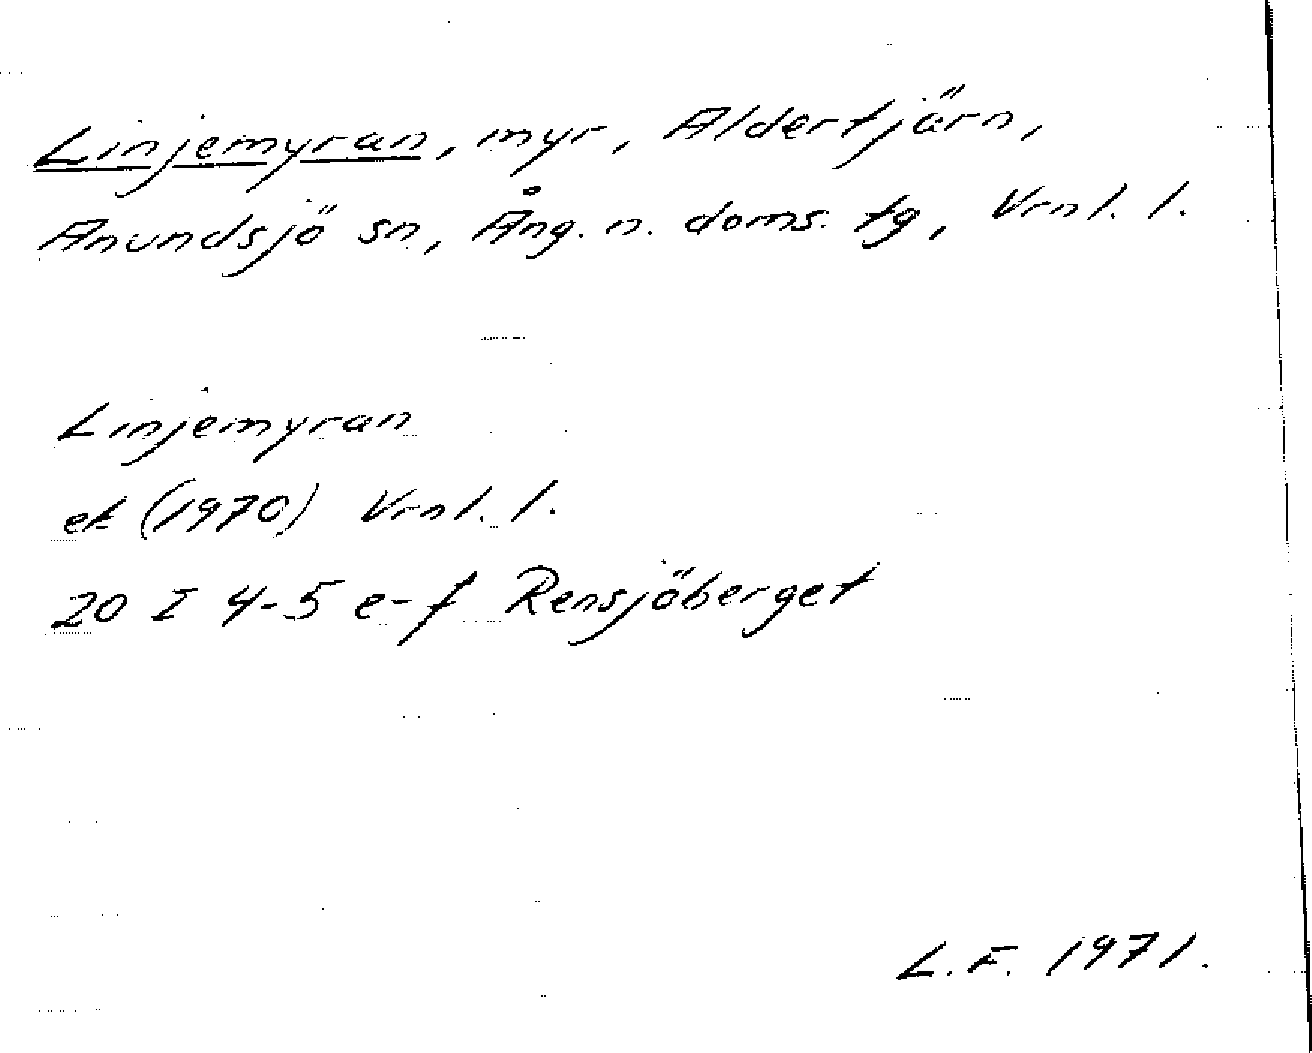 Linjemyran, myr, Aldertjärn,
Anundsjö sn, Ång. n. doms. tg, Vrnl. l.
Linjemyran
ek (1970) Vrnl. l.
20 I 4-5 e-f Rensjöberget
L.F. 1971.